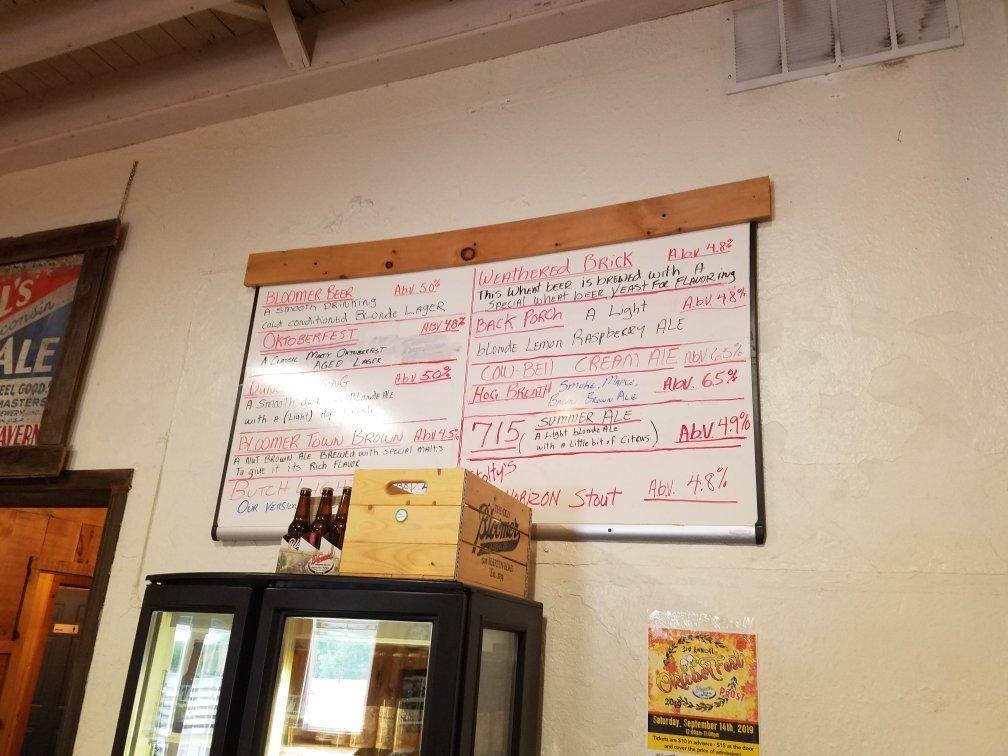 L'S
consin
ALE
EEL GOOD
MASTERS
TAVERN
BLOOMER BEER Abv. 5.0%
A SMOOTH DRINKING
COLD CONDITIONED BLONDE LAGER
OKTOBERFEST ABV 4.8%
A CLASSIC MALTY OKTOBERFEST
AGED LAGER
Abv 5.0%
A Smooth
ALE
with a (Light)
BLOOMER TOWN BROWN Abv 4.5%
A NUT BROWN ALE BREWED with SPECIAL MALTS
To give it its Rich FLAVOR
BUTCH
OUR VERSION
WEATHERED BRICK Abv. 4.8%
THIS WHEAT BEER IS BREWED WITH A
SPECIAL WHEAT BEER YEAST FOR FLAVORING
BACK PORCH A Light Abv. 4.8%
bLONDE LEMON RASPBERRY ALE
COW-BELL CREAM ALE Abv 6.5%
HOG BREATH SMOKE, MAPLE, Abv. 6.5%
BROWN ALE
715 ( SUMMER ALE Abv. 4.9%
A Light blonde ALE
with A Little bit of Citrus)
Stolty's
HORIZON STOUT Abv. 4.8%
Bloomer
3RD ANNUAL
Oktoberfest
2019
PROST
Saturday, September 14th, 2019
12:00pm-11:00pm
Tickets are $10 in advance - $15 at the door
and cover the price of admission!